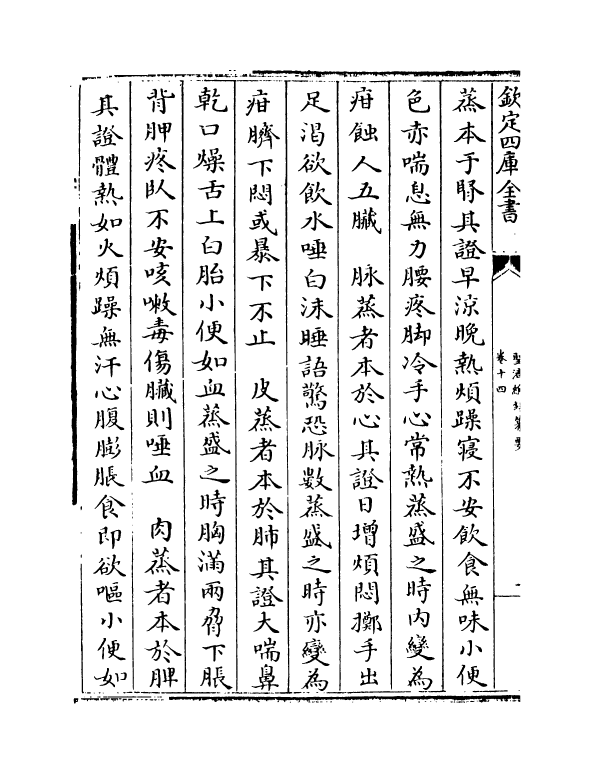 欽定四庫全書
卷十四
蒸本于腎其證早涼晚熱煩躁寢不安飲食無味小便
色赤喘息無力腰疼脚冷手心常熱蒸盛之時内變為
疳蝕人五臟　脉蒸者本於心其證日增煩悶擲手出
足渴欲飲水唾白沫睡語驚恐脉數蒸盛之時亦變為
疳臍下悶或暴下不止　皮蒸者本於肺其證大喘鼻
乾口燥舌上白胎小便如血蒸盛之時胸滿兩脅下脹
背胛疼臥不安咳嗽毒傷臟則唾血　肉蒸者本於脾
其證體熱如火煩躁無汗心腹膨脹食即欲嘔小便如